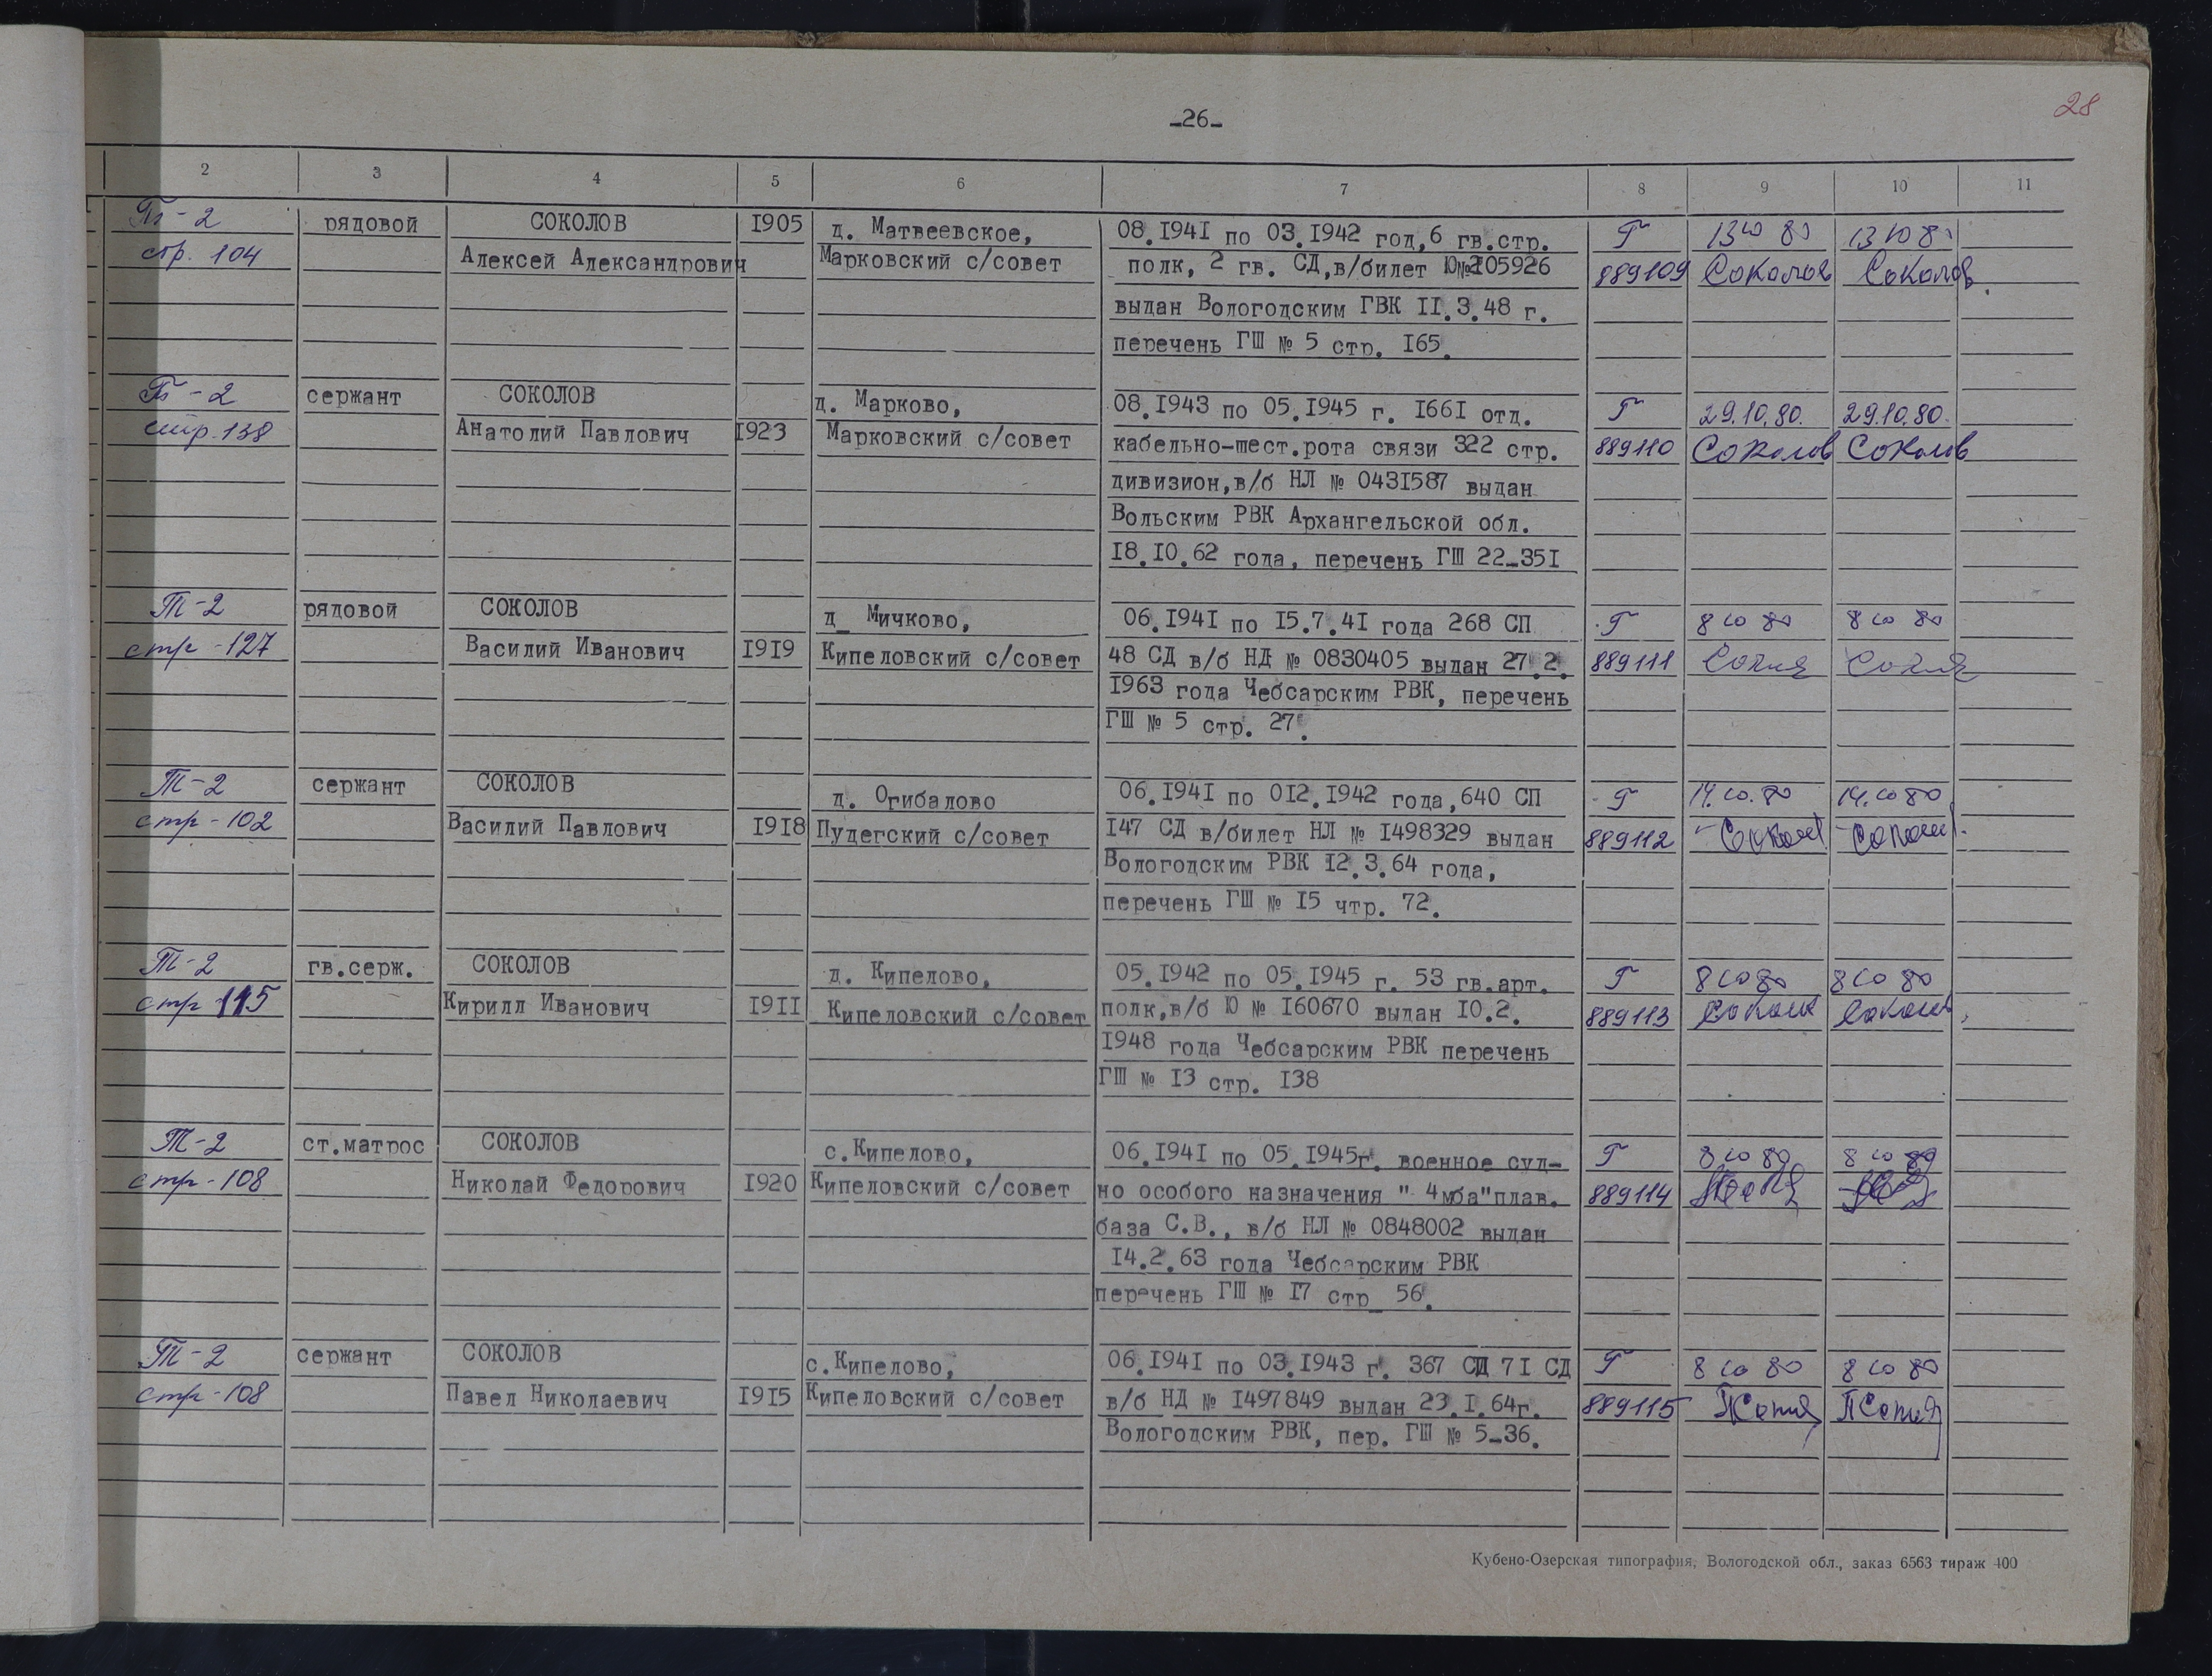 -26-
28
2 3 4 5 6 7 8 9 10 11
Тг-2 рядовой СОКОЛОВ I905 д. Матвеевское, 08.I94I по 03.I942 год,6 гв.стр. Г 13 10 80 13 10 80
стр. 104 Алексей Александрович Марковский с/совет полк, 2 гв. СД,в/билет Ю№I05926 889109 Соколов Соколов.
выдан Вологодским ГВК II.3.48 г.
перечень ГШ № 5 стр. I65.
Тг-2 сержант СОКОЛОВ д. Марково, 08.I943 по 05.I945 г. I66I отд. Г 29.10.80. 29.10.80.
стр.138 Анатолий Павлович I923 Марковский с/совет кабельно-шест.рота связи 322 стр. 889110 Соколов Соколов
дивизион,в/б НЛ № 043I587 выдан
Вольским РВК Архангельской обл.
I8.I0.62 года, перечень ГШ 22-35I
Т-2 рядовой СОКОЛОВ д_ Мичково, 06.I94I по I5.7.4I года 268 СП Г 8 10 80 8 10 80
стр -127 Василий Иванович I9I9 Кипеловский с/совет 48 СД в/б НД № 0830405 выдан 27.2. 889111
I963 года Чебсарским РВК, перечень
ГШ № 5 стр. 27.
Т-2 сержант СОКОЛОВ д. Огибалово 06.I94I по 0I2.I942 года,640 СП Г 14.10.80 14.10 80
стр-102 Василий Павлович I9I8 Пудегский с/совет I47 СД в/билет НЛ № I498329 выдан 889112
Вологодским РВК I2.3.64 года,
перечень ГШ № I5 чтр. 72.
Т-2 гв.серж. СОКОЛОВ д. Кипелово, 05.I942 по 05.I945 г. 53 гв.арт. Г 8 10 80 8 10 80
стр 115 Кирилл Иванович I9II Кипеловский с/совет полк,в/б Ю № I60670 выдан I0.2. 889113
I948 года Чебсарским РВК перечень
ГШ № I3 стр. I38
Т-2 ст.матрос СОКОЛОВ с.Кипелово, 06.I94I по 05.I945г. военное суд- Г 8 10 80 8 10 80
стр-108 Николай Федорович I920 Кипеловский с/совет но особого назначения " 4мба"плав. 889114
база С.В., в/б НЛ № 0848002 выдан
I4.2.63 года Чебсарским РВК
перечень ГШ № I7 стр_ 56.
Т-2 сержант СОКОЛОВ с.Кипелово, 06.I94I по 03.I943 г. 367 СП 7I СД Г 8 10 80 8 10 80
стр-108 Павел Николаевич I9I5 Кипеловский с/совет в/б НД № I497849 выдан 23.I.64г. 889115
Вологодским РВК, пер. ГШ № 5-36.
Кубено-Озерская типография, Вологодской обл., заказ 6563 тираж 400